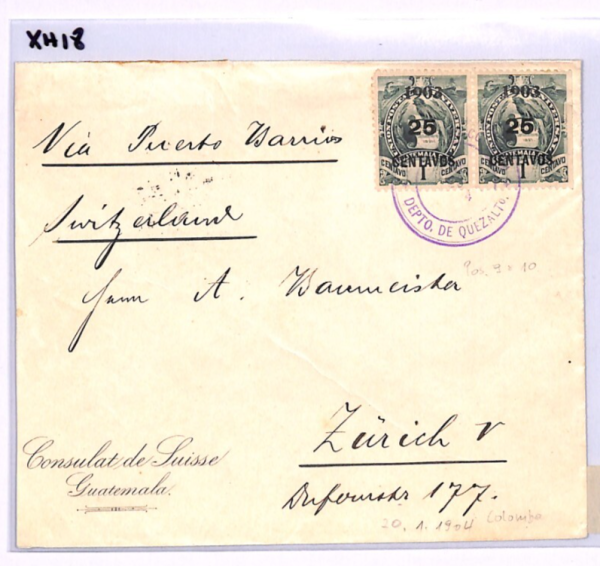 XH18
1903 1903
25 25
CENTAVOS CENTAVOS
CENTAVO 1 CENTAVO CENTAVO 1 CENTAVO
Via Puerto Barrios
DEPTO. DE QUEZALTO.
Switzerland
Pos. 9 + 10
Herrn A. Baumeister
Zürich V
Consulat de Suisse
Guatemala.
Dufourstr 177.
20. 1. 1904 Colombo